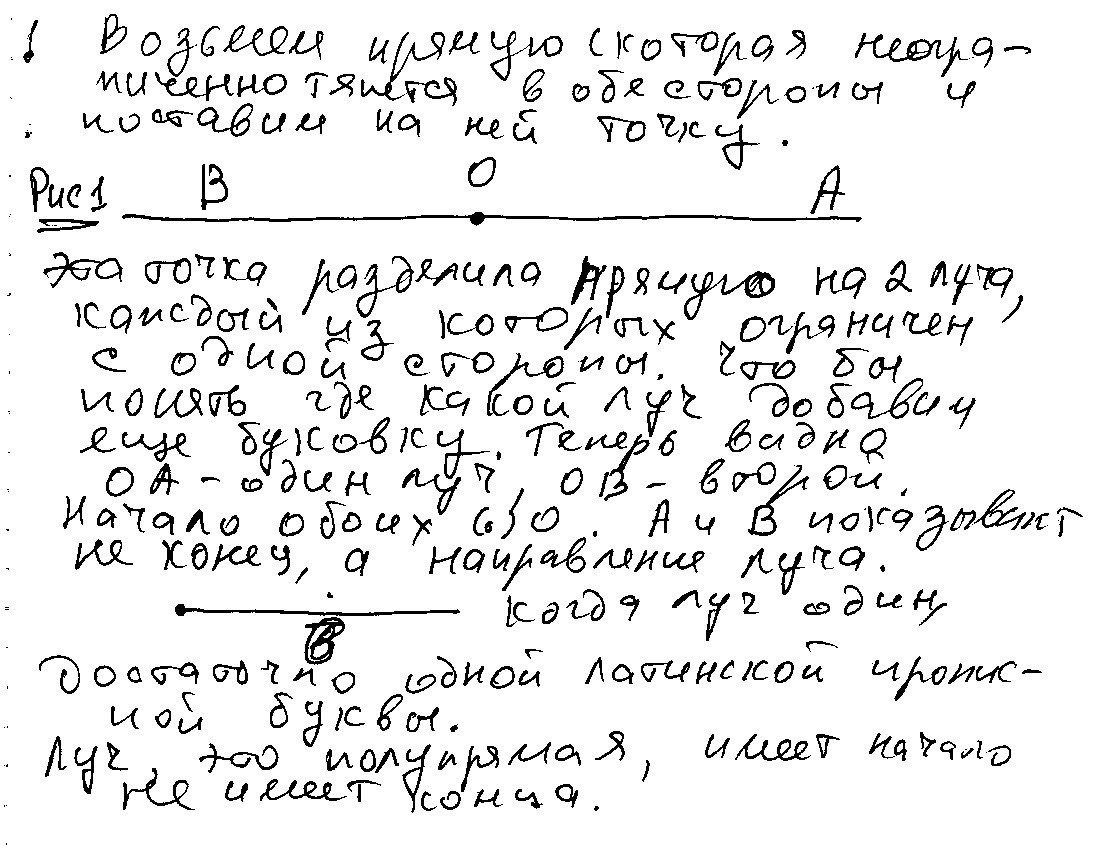 ! Возьмем прямую (которая неогра-
ниченно тянется в обе стороны и
поставим на ней точку.
Рис 1 В О А
Эта точка разделила прямую на 2 луча,
каждый из которых ограничен
с одной стороны. Что бы
понять где какой луч добавим
еще буковку. Теперь видно
ОА - один луч, ОВ - второй.
Начало обоих в О. А и В показывают
не конец, а направление луча.
когда луч один,
В
достаточно одной латинской пропис-
ной буквы.
Луч, это полупрямая, имеет начало
не имеет конца.